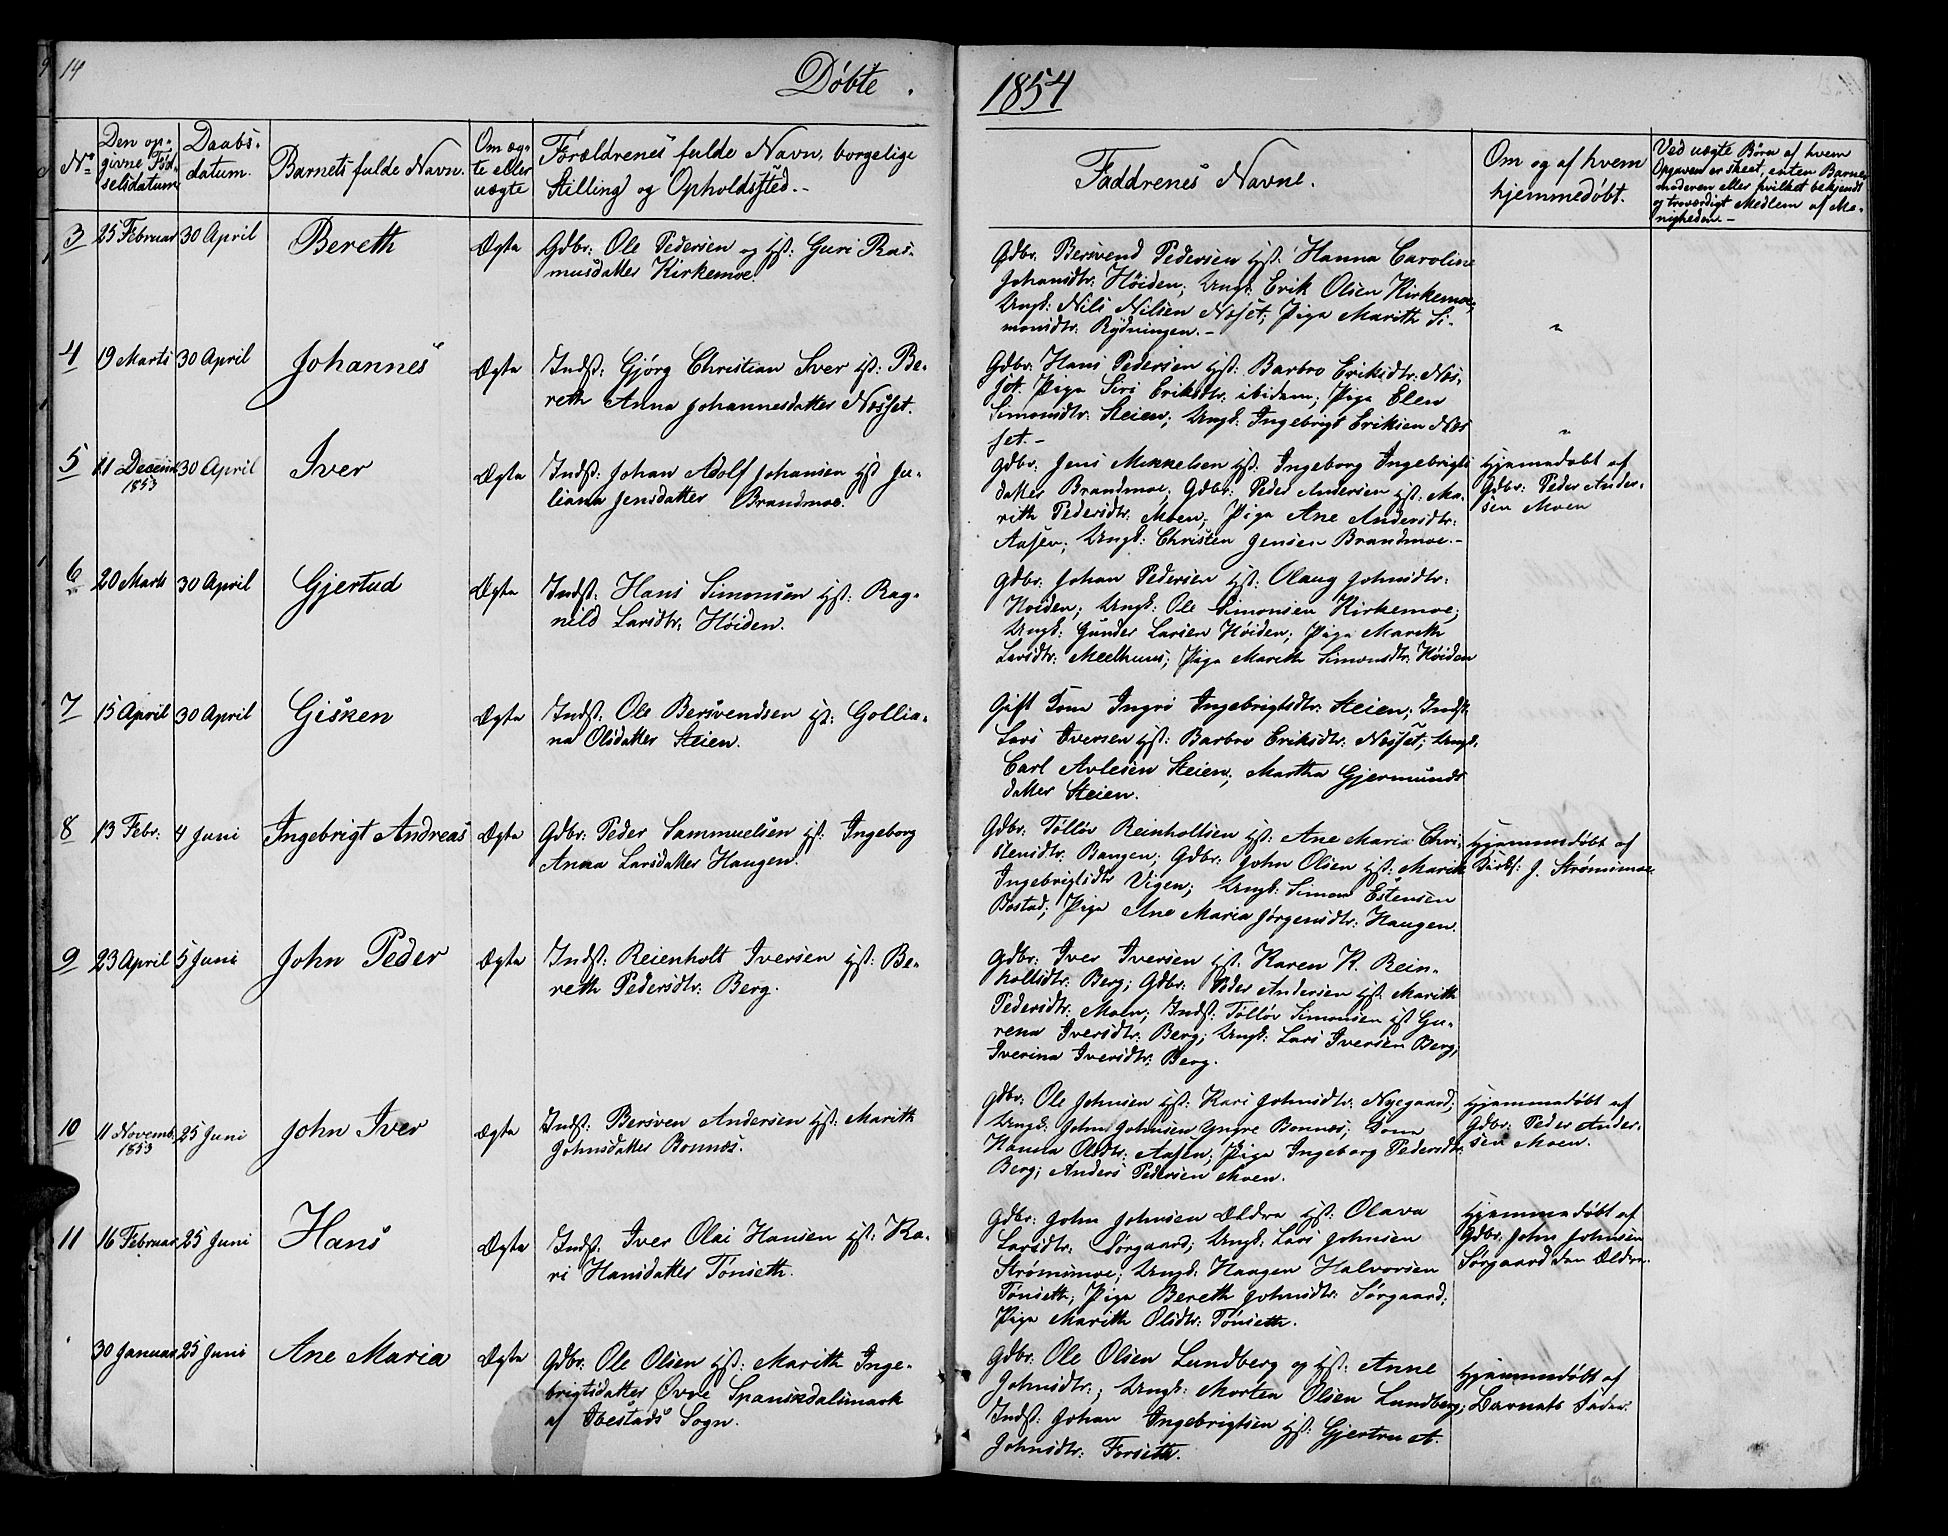 14
Døbte.
1854
No
Den op-
givne Fød-
selsdatum
Daabs-
datum.
Barnets fulde Navn.
Om æg-
te eller
uægte
Forældrenes fulde Navn, borgelige
Stilling og Opholdssted.-
Faddrenes Navne.
Om og af hvem
hjemmedøbt.
Ved uægte Børn af hvem
Opgaven er skeet, enten Barne-
moderen eller hvilket bekjendt
og troværdigt Medlem af Me-
nigheden.-
3
25 Februar
30 April
Bereth
Ægte
Gdbr: Ole Pedersen og Hst: Guri Ras-
musdatter Kirkemoe.
Gdbr: Bersvend Pedersen Hst: Hanna Caroline
Johansdtr: Høiden; Ungk: Erik Olsen Kirkemoe;
Ungk: Nils Nilsen Nøset; Pige Marith Si-
monsdtr: Rydningen.-
"
4
19 Marts
30 April
Johannes
Ægte
Indst: Gjørg Christian Iver Hst: Be-
reth Anna Johannesdatter Nøsset.
Gdbr: Hans Pedersen Hst: Barbro Eriksdtr: Nøs-
set. Pige Siri Eriksdtr: ibidem; Pige Elen
Simonsdtr: Steien; Ungk: Ingebrigt Eriksen Nøs
set.-
"
5
11 Decemb
1853
30 April
Iver
Ægte
Indst: Johan Adolf Johansen Hst Ju-
liana Jensdatter Brandmoe.
Gdbr: Jens Mikkelsen Hst: Ingeborg Ingebrigts
datter Brandmoe; Gdbr: Peder Andersen Hst: Ma-
rith Pedersdtr: Moen; Pige Ane Andersdtr:
Aasen; Ungk: Christen Jensen Brandmoe.-
Hjemmedøbt af
Gdbr: Peder Ander-
sen Moen
6
20 Marts
30 April
Gjertud
Ægte
Indst: Hans Simonsen Hst: Rag-
nild Larsdtr: Høiden.
Gdbr: Johan Pedersen Hst: Olaug Johnsdtr:
Høiden; Ungk: Ole Simonsen Kirkemoe;
Ungk: Gunder Larsen Høiden; Pige Marith
Larsdtr: Meelhuus; Pige Marith Simonsdtr: Høiden
7
15 April
30 April
Gisken
Ægte
Indst: Ole Bersvendsen Hst: Gollia-
na Olsdatter Steien.
Gift Kone Ingrø Ingebrigtsdtr: Steien; Indst:
Lars Iversen Hst: Barbro Eriksdtr: Nøsset; Ungk:
Carl Avlesen Steien; Martha Gjermunds
datter Steien.
8
13 Febr:
4 Juni
Ingebrigt Andreas
Ægte
Gdbr: Peder Sammuelsen Hst: Ingeborg
Anna Larsdatter Haugen.
Gdbr: Tølløv Reinholtsen Hst: Ane Maria Chri-
stensdtr: Bangen; Gdbr: John Olsen Hst: Marith
Ingebrigtsdtr Vigen; Ungk: Simon Estensen
Bostad; Pige Ane Maria Jørgensdtr: Haugen.
Hjemmedøbt af
Kirks: J. Strømsmoe
9
23 April
5 Juni
John Peder
Ægte
Indst: Reienholt Iversen Hst: Be-
reth Pedersdtr: Berg.
Gdbr: Iver Iversen Hst: Karen K. Rein-
holtsdtr: Berg; Gdbr: Peder Andersen Hst: Marith
Pedersdtr: Moen; Indst: Tølløv Simonsen Hst Gu-
rena Iversdtr: Berg; Ungk: Lars Iversen Berg;
Iverina Iversdtr: Berg.
10
11 Novemb.
1853
25 Juni
John Iver
Ægte
Indst: Bersven Andersen Hst: Marith
Johnsdatter Bonnes.
Gdbr: Ole Johnsen Hst: Kari Johnsdtr: Nyegaard;
Ungk: John Johnsen Yngre Bonnes; Kone
Hanna Olsdtr: Aasen; Pige Ingeborg Pedersdtr:
Berg; Anders Pedersen Moen.
Hjemmedøbt af
Gdbr: Peder Ander-
sen Moen.
11
16 Februar
25 Juni
Hans
Ægte
Indst: Iver Olai Hansen Hst: Ka-
ri Hansdatter Tønseth.
Gdbr: John Johnsen Ældre Hst: Olava
Larsdtr: Sørgaard; Ungk: Lars Johnsen
Strømsmoe; Ungk: Haagen Halvorsen
Tønseth; Pige Bereth Johnsdtr: Sørgaard;
Pige Marith Olsdtr: Tønseth.
Hjemmedøbt af
Gdbr: John Johnsen
Sørgaard den Ældre.
30 Januar
25 Juni
Ane Maria
Ægte
Gdbr: Ole Olsen Hst: Marith Inge-
brigtsdatter Øvre Spansdalsmark
af Ibestads Sogn.
Gdbr: Ole Olsen Lundberg og Hst: Anne
Johnsdtr:; Ungk: Morten Olsen Lundberg;
Indst: Johan Ingebrigtsen Hst: Gjertru A.
Johnsdtr: Forseth.
Hjemmedøbt af
Barnets Fader.